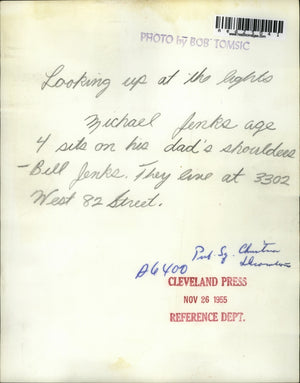 PHOTO by BOB TOMSIC
Looking up at the lights
Michael Jenks age
4 sits on his dad's shoulders
-Bill Jenks. They live at 3302
West 82 Street.
Pub. Sq. Christmas
A6400
CLEVELAND PRESS
NOV 26 1955
REFERENCE DEPT.